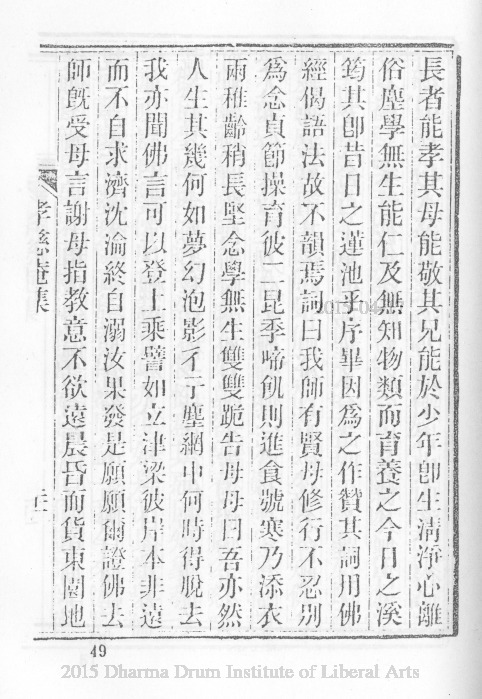 長者能孝其母能敬其兄能於少年卽生清淨心離
俗塵學無生能仁及無知物類而育養之今日之溪
筠其卽昔日之蓮池乎序畢因爲之作贊其詞用佛
經偈語法故不韻焉詞曰我師有賢母修行不忍別
爲念貞節操育彼二昆季啼飢則進食號寒乃添衣
兩稚齡稍長堅念學無生雙雙跪告母母曰吾亦然
人生其幾何如夢幻泡影彳亍塵網中何時得脫去
我亦聞佛言可以登上乘譬如立津梁彼岸本非遠
而不自求濟沈淪終自溺汝果發是願願爾證佛去
師旣受母言謝母指教意不欲遠晨昏而貨東園地
孝慈菴集
49
2015 Dharma Drum Institute of Liberal Arts